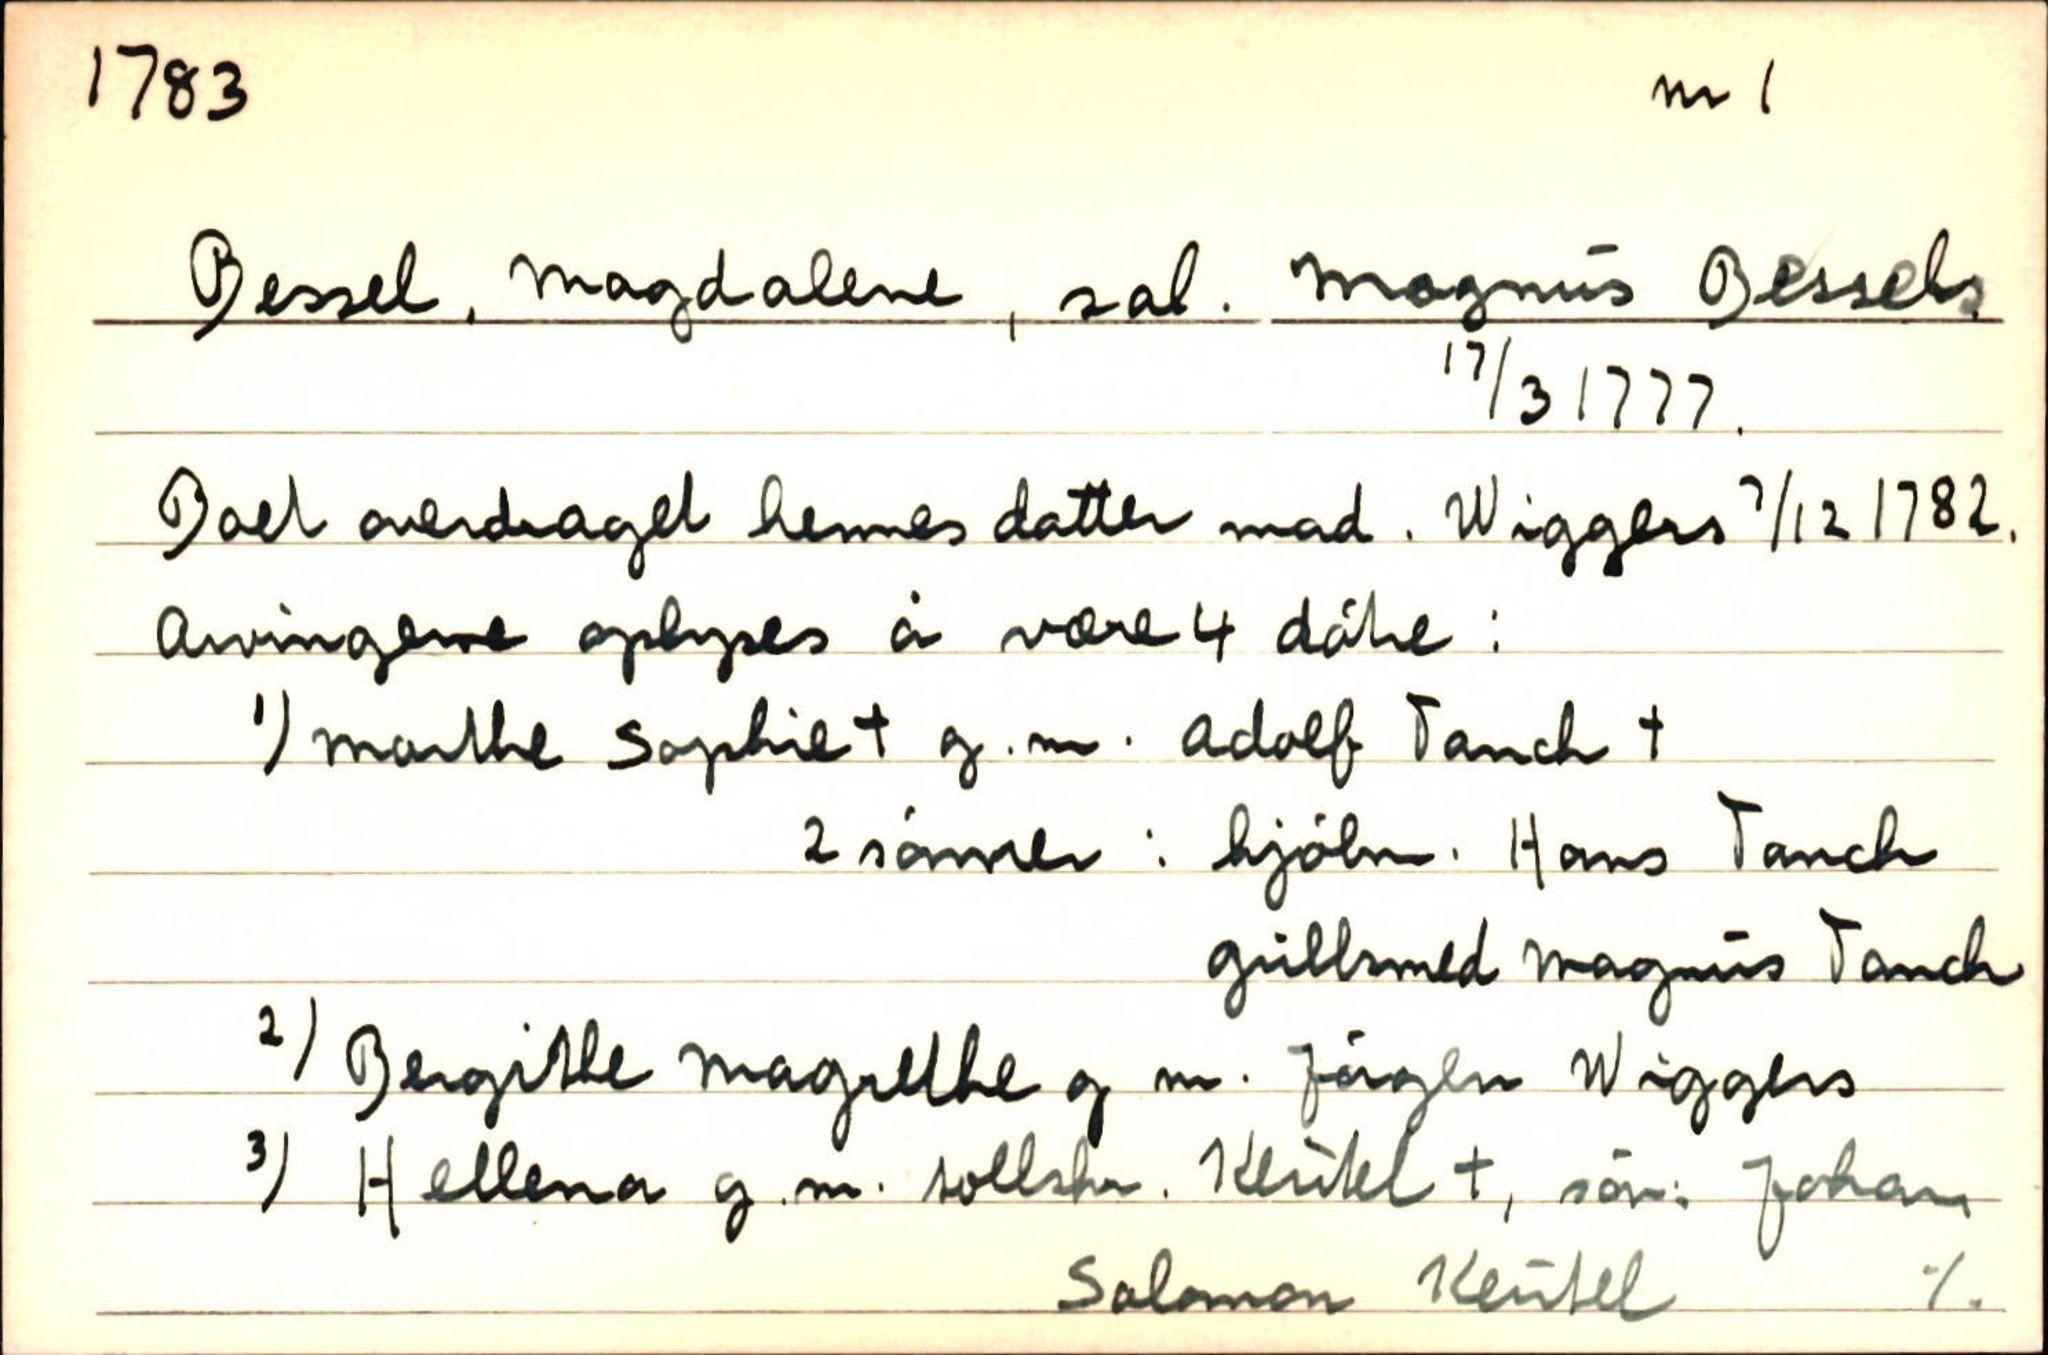 1783 nr 1
Bessel, Magdalene, sal. Magnus Bessels
17/3 1777.
Boet overdraget hennes datter mad. Wiggers 7/12 1782.
Arvingene oplyses å være 4 døtre:
1) Marthe Sophie † g.m. Adolf Tanch †
2 sønner: kjøbm. Hans Tanch
gullsmed Magnus Tanch
2) Bergithe Magrethe g m. Jörgen Wiggers
3) Hellena g.m. tollskr. Keutel †, søn: Johan
Salomon Keutel ./.